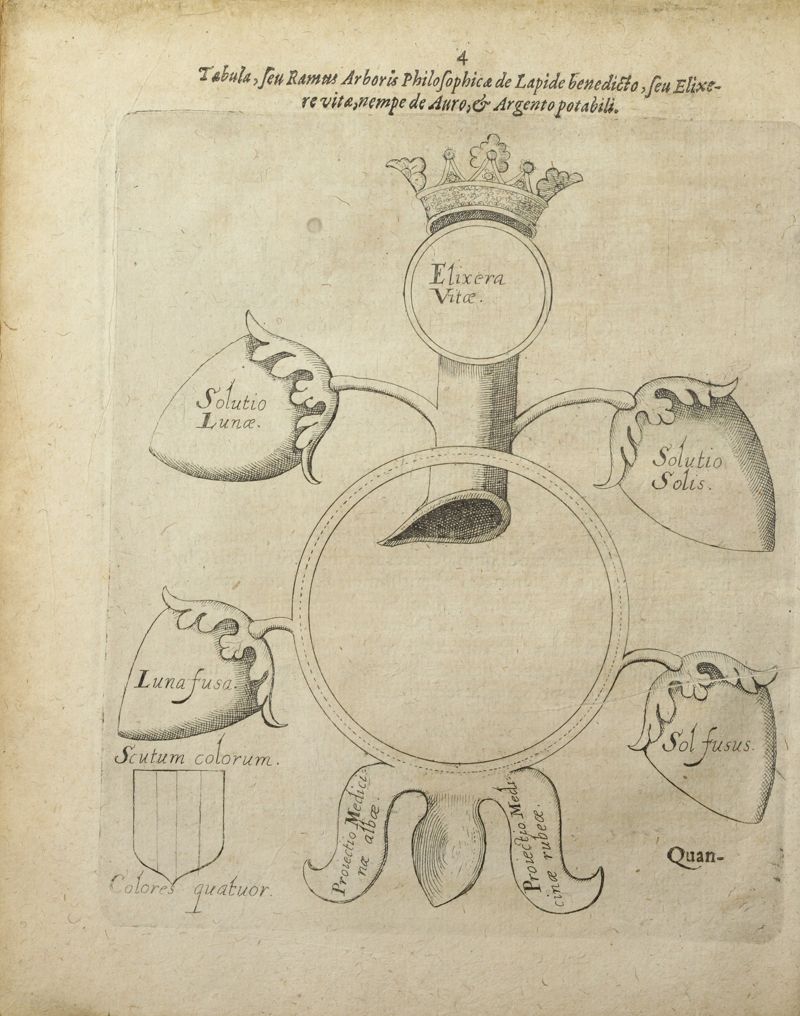 4
Tabula, seu Ramus Arboris Philosophicæ de Lapide benedicto, seu Elixe-
re vitæ, nempe de Auro, & Argento potabili.
Elixera
Vitæ.
Solutio
Lunæ.
Solutio
Solis.
Luna fusa.
Sol fusus.
Scutum colorum.
Colores quatuor.
Proiectio Medici
næ albæ.
Proiectio Medi
cinæ rubeæ.
Quan-